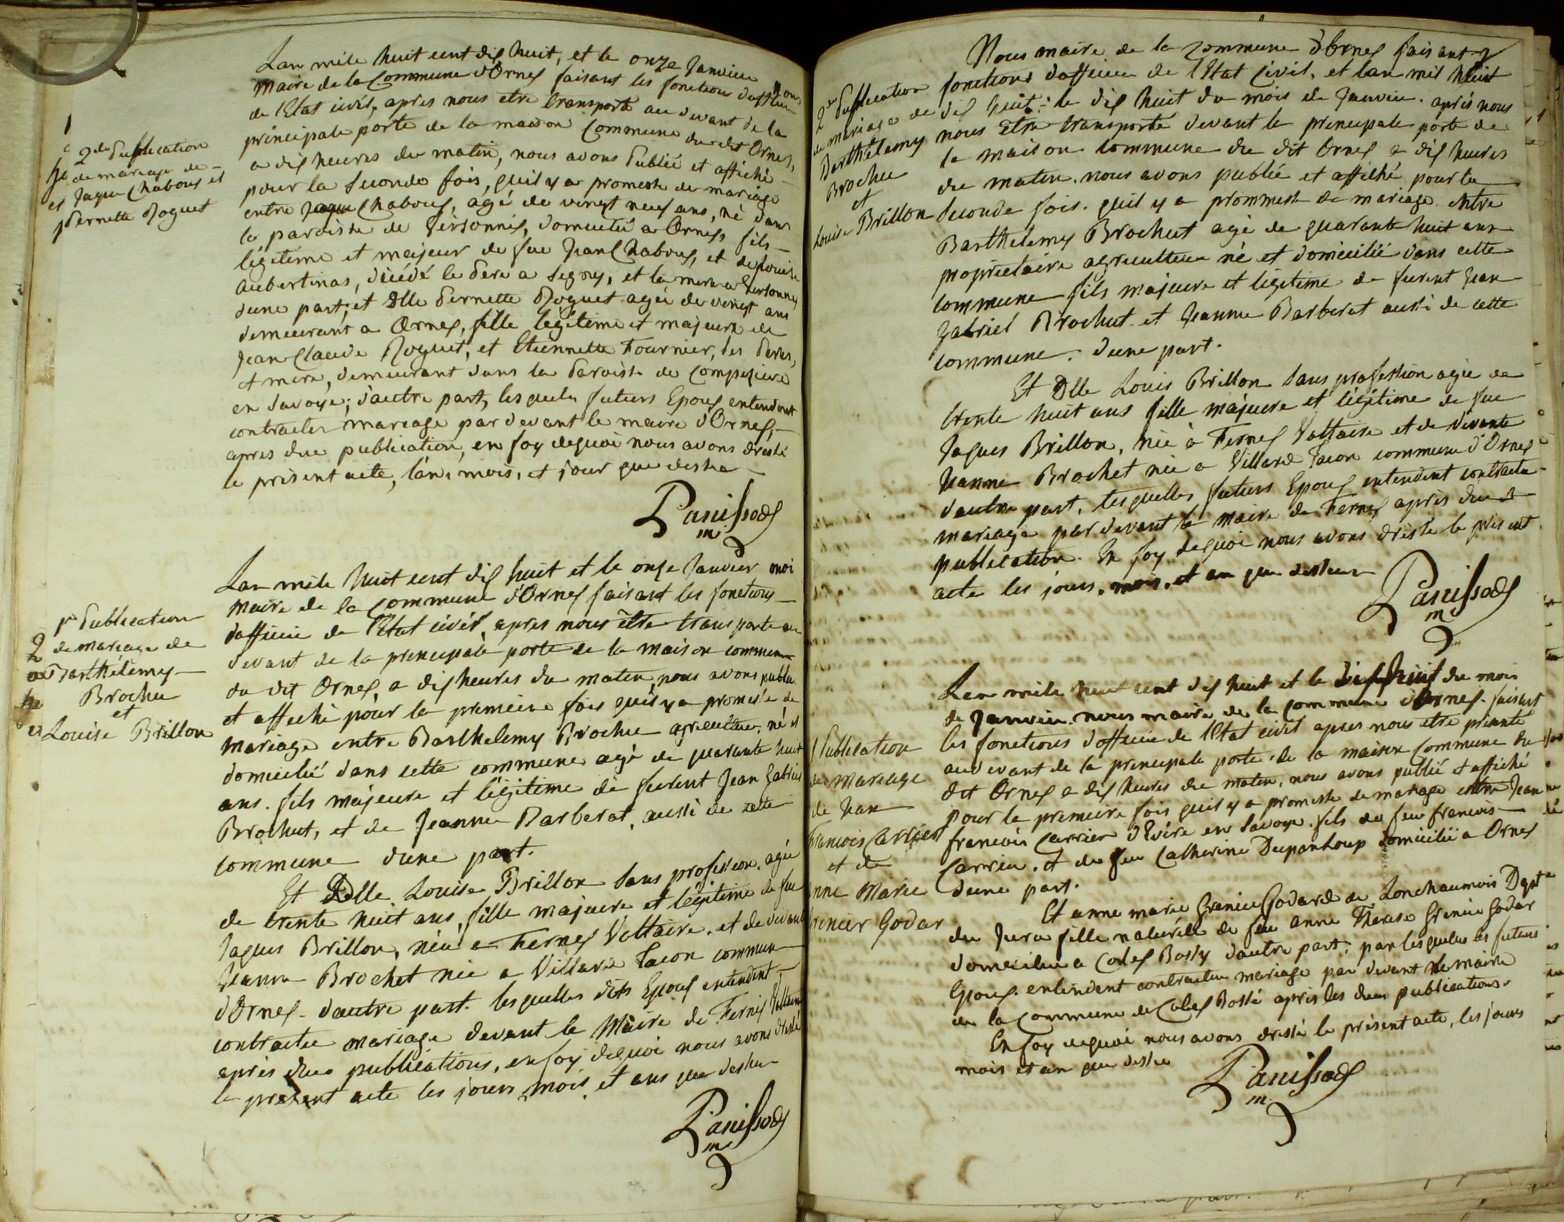 1
2de Publication
de mariage de
Jaque Chabous et
Pernette Roguet
Lan mile huit cent dix huit, et le onze Janvier Nous
maire de la Commune d'Ornex faisant les fonction d'officier
de l'Etat civil, apres nous etre transporté au devant de la
principale porte de la maison Commune du dit Ornex,
a dix heures du matin, nous avons Publié et affiché
pour la seconde fois, quil y a promesse de mariage
entre Jaque Chabous, agé de vingt neuf ans, né dans
la paroisse de Versonnex, domicilié a Ornex, fils
légitime et majeur de feu Jean Chabous, et de Louise
Aubertinas, décédé le Pere a Segny, et la mere a Versonnex
dune part; et Dlle Pernette Roguet agée de vingt ans
demeurant a Ornex, fille légitime et majeure de
Jean Claude Roguet, et Etiennette Fournier, ses Peres,
et mere, demeurant dans la Paroisse de Compesiere
en Savoye; d'autre part, lesquels futurs Epoux entendent
contracter mariage par devant le maire d'Ornex,
apres due publication, en foy dequoi nous avons dressé
le présent acte, l'an, mois, et jour que dessus
Panissod
m
2
1re Publication
de mariage de
Barthélemy
Brochu
et
Louise Brillon
Lan mile huit cent dix huit et le onze Janvier moi
maire de la commune d'Ornex faisant les fonctions
dofficier de l'Etat civil, apres nous être transporté au
devant de la principale porte de la maison commune
du dit Ornex, a dix heures du matin, nous avons publié
et affiché pour la premiere fois quil y a promesse de
mariage entre Barthelemy Brochu agriculteur, né et
domicilié dans cette commune agé de quarante huit
ans. fils majeure et légitime de feurent Jean Gabriel
Brochut, et de Jeanne Barberat, aussi de cette
commune dune part.
Et Dlle Louise Brillon sans profession. agée
de trente huit ans, fille majeure et légitime de feu
Jaques Brillon, née a Fernex Voltaire. et de vivante
Jeanne Brochet née a Villard Tacon commune
d'Ornex. d'autre part. lesquelles dits Epoux entendent
contracter mariage devant le Maire de Fernex Voltaire
apres dues publications, en foy dequoi nous avons dressé
le present acte les jours, mois, et ans que dessus
Panissod
m
2de Publication
de mariage de
Barthélemy
Brochu
et
Louise Brillon
Nous maire de la commune d'Ornex faisant
fonctions dofficier de l'Etat Civil, et lan mil huit
dix huit: le dix huit du mois de Janvier. après nous
nous être transporté devant la principale porte de
la maison commune du dit Ornex a dix heures
du matin. nous avons publié et affiché pour la
seconde fois. quil y a prommesse de mariage entre
Barthelemy Brochut agé de quarante huit ans
propriétaire agriculteur né et domicilié dans cette
commune fils majeure et légitime de furent Jean
Gabriel Brochut. et Jeanne Barberat aussi de cette
commune. dune part.
Et Dlle Louis Brillon sans profession agée de
trente huit ans fille majeure et légitime de feu
Jaques Brillon. née à Fernex Voltaire et de vivante
Jeanne Brochet née a Villard Tacon commune d'Ornex
d'autre part. lesquelles futurs Epoux entendent contracter
mariage par devant le maire de Fernex apres due
publication. En foy dequoi nous avons dressé le present
acte les jours. mois. et an que dessus
Panissod
m
Publication
de mariage
de Jean
francois Carrier
et de
Anne Marie
Grenier Godar
Lan mile huit cent dix huit et le dix huit du mois
de Janvier. nous maire de la commune d'Ornex. faisant
les fonctions d'officier de l'Etat civil apres nous etre présenté
audevant de la principale porte de la maison commune du
dit Ornex a dix heures du matin, nous avons publié et affiché
pour la premiere fois quil y a promesse de mariage entre Jean
francois Carrier d'Evire en Savoye. fils de feu francois
Carrier. et de feu Catherine Dupanloup domicilié a Ornex
dune part.
Et anne marie Grenier Godard de Lonchaumois Dept
du Jura fille naturelle de feu anne Therese Grenier Godar
domiciliée a Colex Bossy d'autre part: par lesquelles les futurs
Epoux. entendent contracter mariage par devant le maire
de la Commune de Colex Bossé apres les dues publications.
En foy dequoi nous avons dressé le présent acte, les jours
mois et an que dessus
Panissod
m